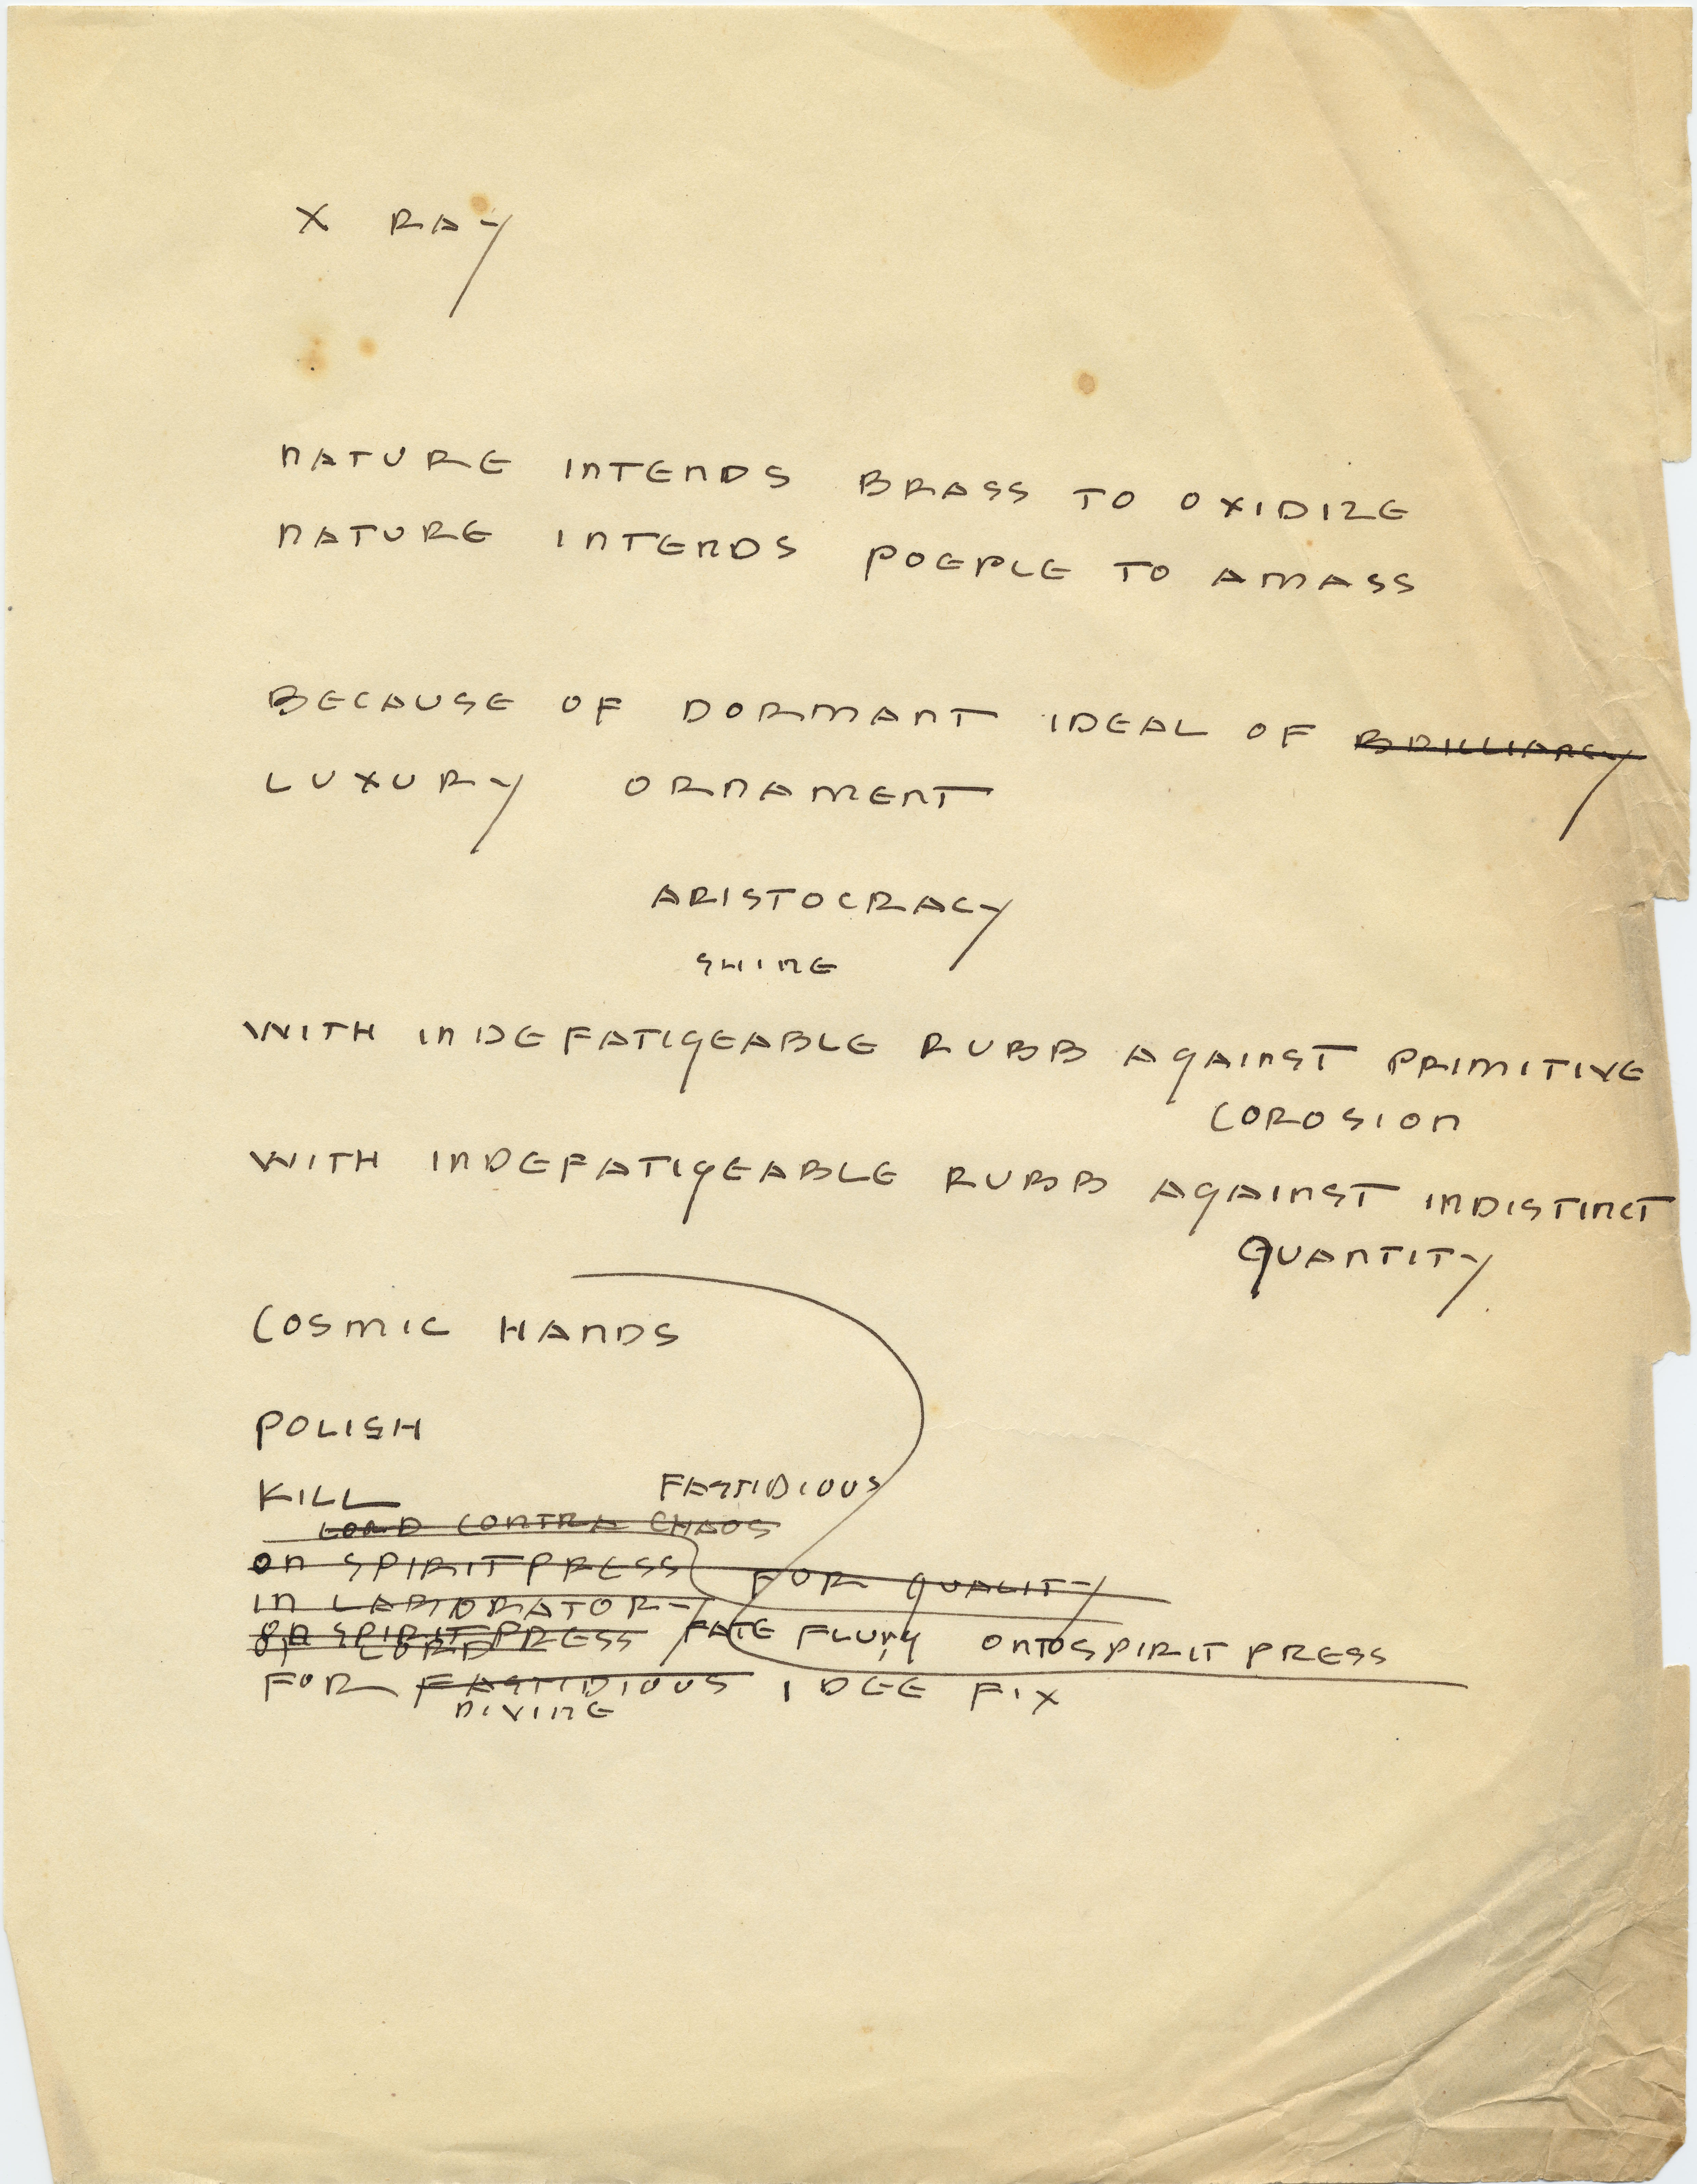 X RAY
NATURE INTENDS BRASS TO OXIDIZE
NATURE INTENDS POEPLE TO AMASS
BECAUSE OF DORMANT IDEAL OF BRILLIANCY
LUXURY ORNAMENT
ARISTOCRACY
SHINE
WITH INDEFATIGEABLE RUBB AGAINST PRIMITIVE
COROSION
WITH INDEFATIGEABLE RUBB AGAINST INDISTINCT
QUANTITY
COSMIC HANDS
POLISH
KILL FASTIDIOUS
LORD CONTRA CHAOS
ON SPIRIT PRESS FOR QUALITY
IN LABORATORY
ON SPIRIT PRESS FATE FLUNG ONTO SPIRIT PRESS
OF LORD
FOR FASTIDIOUS IDEE FIX
DIVINE